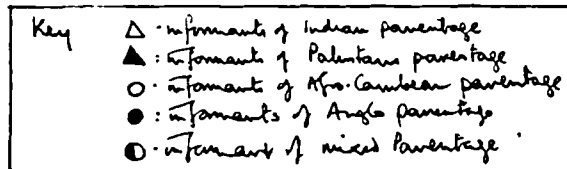 Key △ : informants of Indian parentage
▲ : informants of Pakistani parentage
○ : informants of Afro-Caribbean parentage
● : informants of Anglo parentage
◐ : informant of mixed Parentage